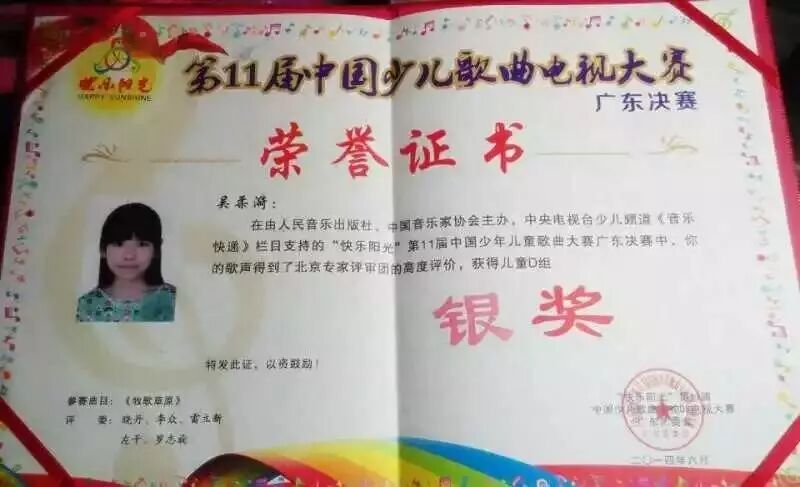 快乐阳光
HAPPY SUNSHINE
第11届中国少儿歌曲电视大赛
广东决赛
荣誉证书
吴柔漪：
在由人民音乐出版社、中国音乐家协会主办，中央电视台少儿频道《音乐
快递》栏目支持的“快乐阳光”第11届中国少年儿童歌曲大赛广东决赛中，你
的歌声得到了北京专家评审团的高度评价，获得儿童D组
银奖
特发此证，以资鼓励！
参赛曲目：《牧歌草原》
评 委：晓丹、李众、雷立新
左平、罗志旋
“快乐阳光”第11届
中国少儿歌曲 电视大赛
二〇一四年六月